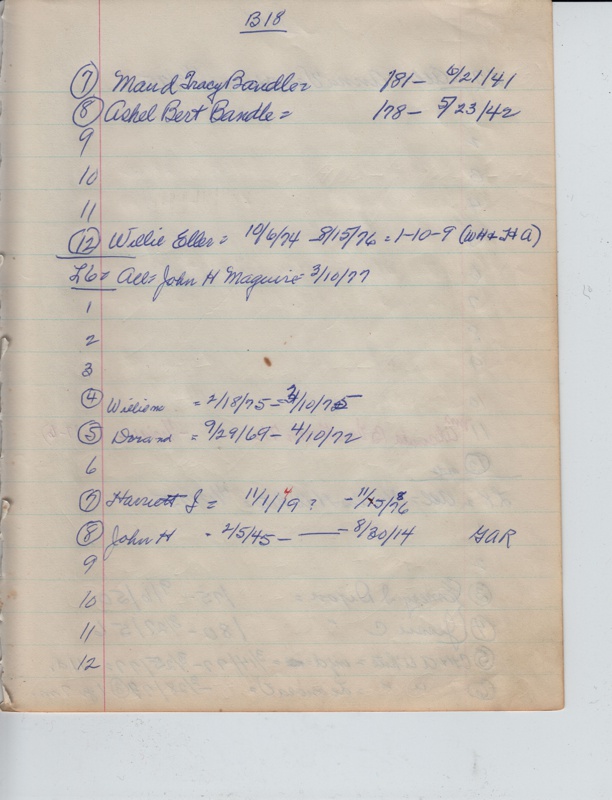 B18
7 Maud Tracy Bandle = /81 - 6/21/41
8 Ashel Bert Bandle = /78 - 5/23/42
9
10
11
12 Willie Eller = 10/6/74 - 8/15/76 = 1-10-9 (WH & JHA)
L6 = All = John H Maguire = 3/10/77
1
2
3
4 = 2/18/75 - /10/75
5 = 9/29/69 - 4/10/72
6
7 Harriett J = 11/1/ 9 ? - 11/ 5/ 8
8 John H - 2/5/45 - - 8/30/14 GAR
9
10
11
12